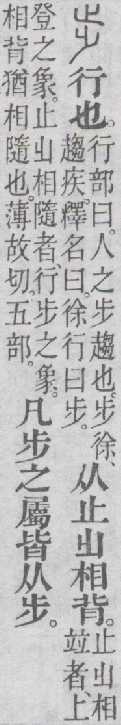 步 行也。行部曰。人之步趨也。步徐、趨疾。釋名曰。徐行曰步。从止𣥂相背。止𣥂相竝者、上
登之象。止𣥂相隨者、行步之象。相背猶相隨也。薄故切。五部。凡步之屬皆从步。